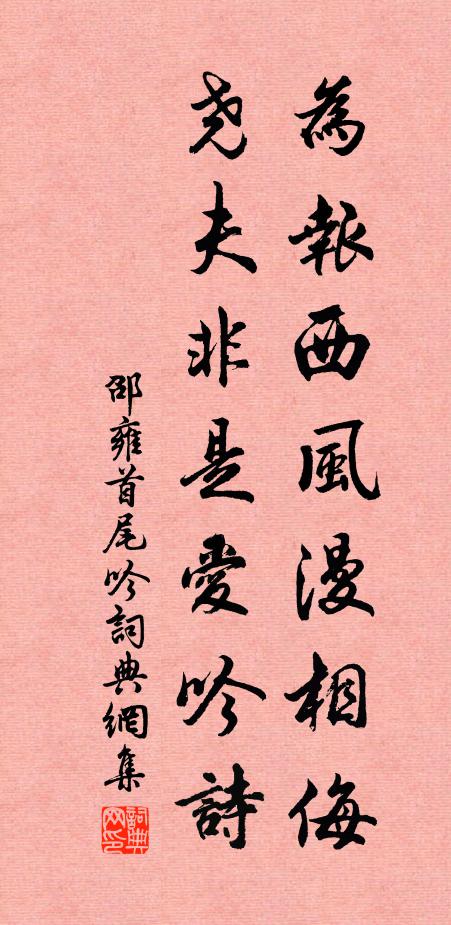 為報西風漫相侮
堯夫非是愛吟詩
邵雍首尾吟詞典網集
詞典网印